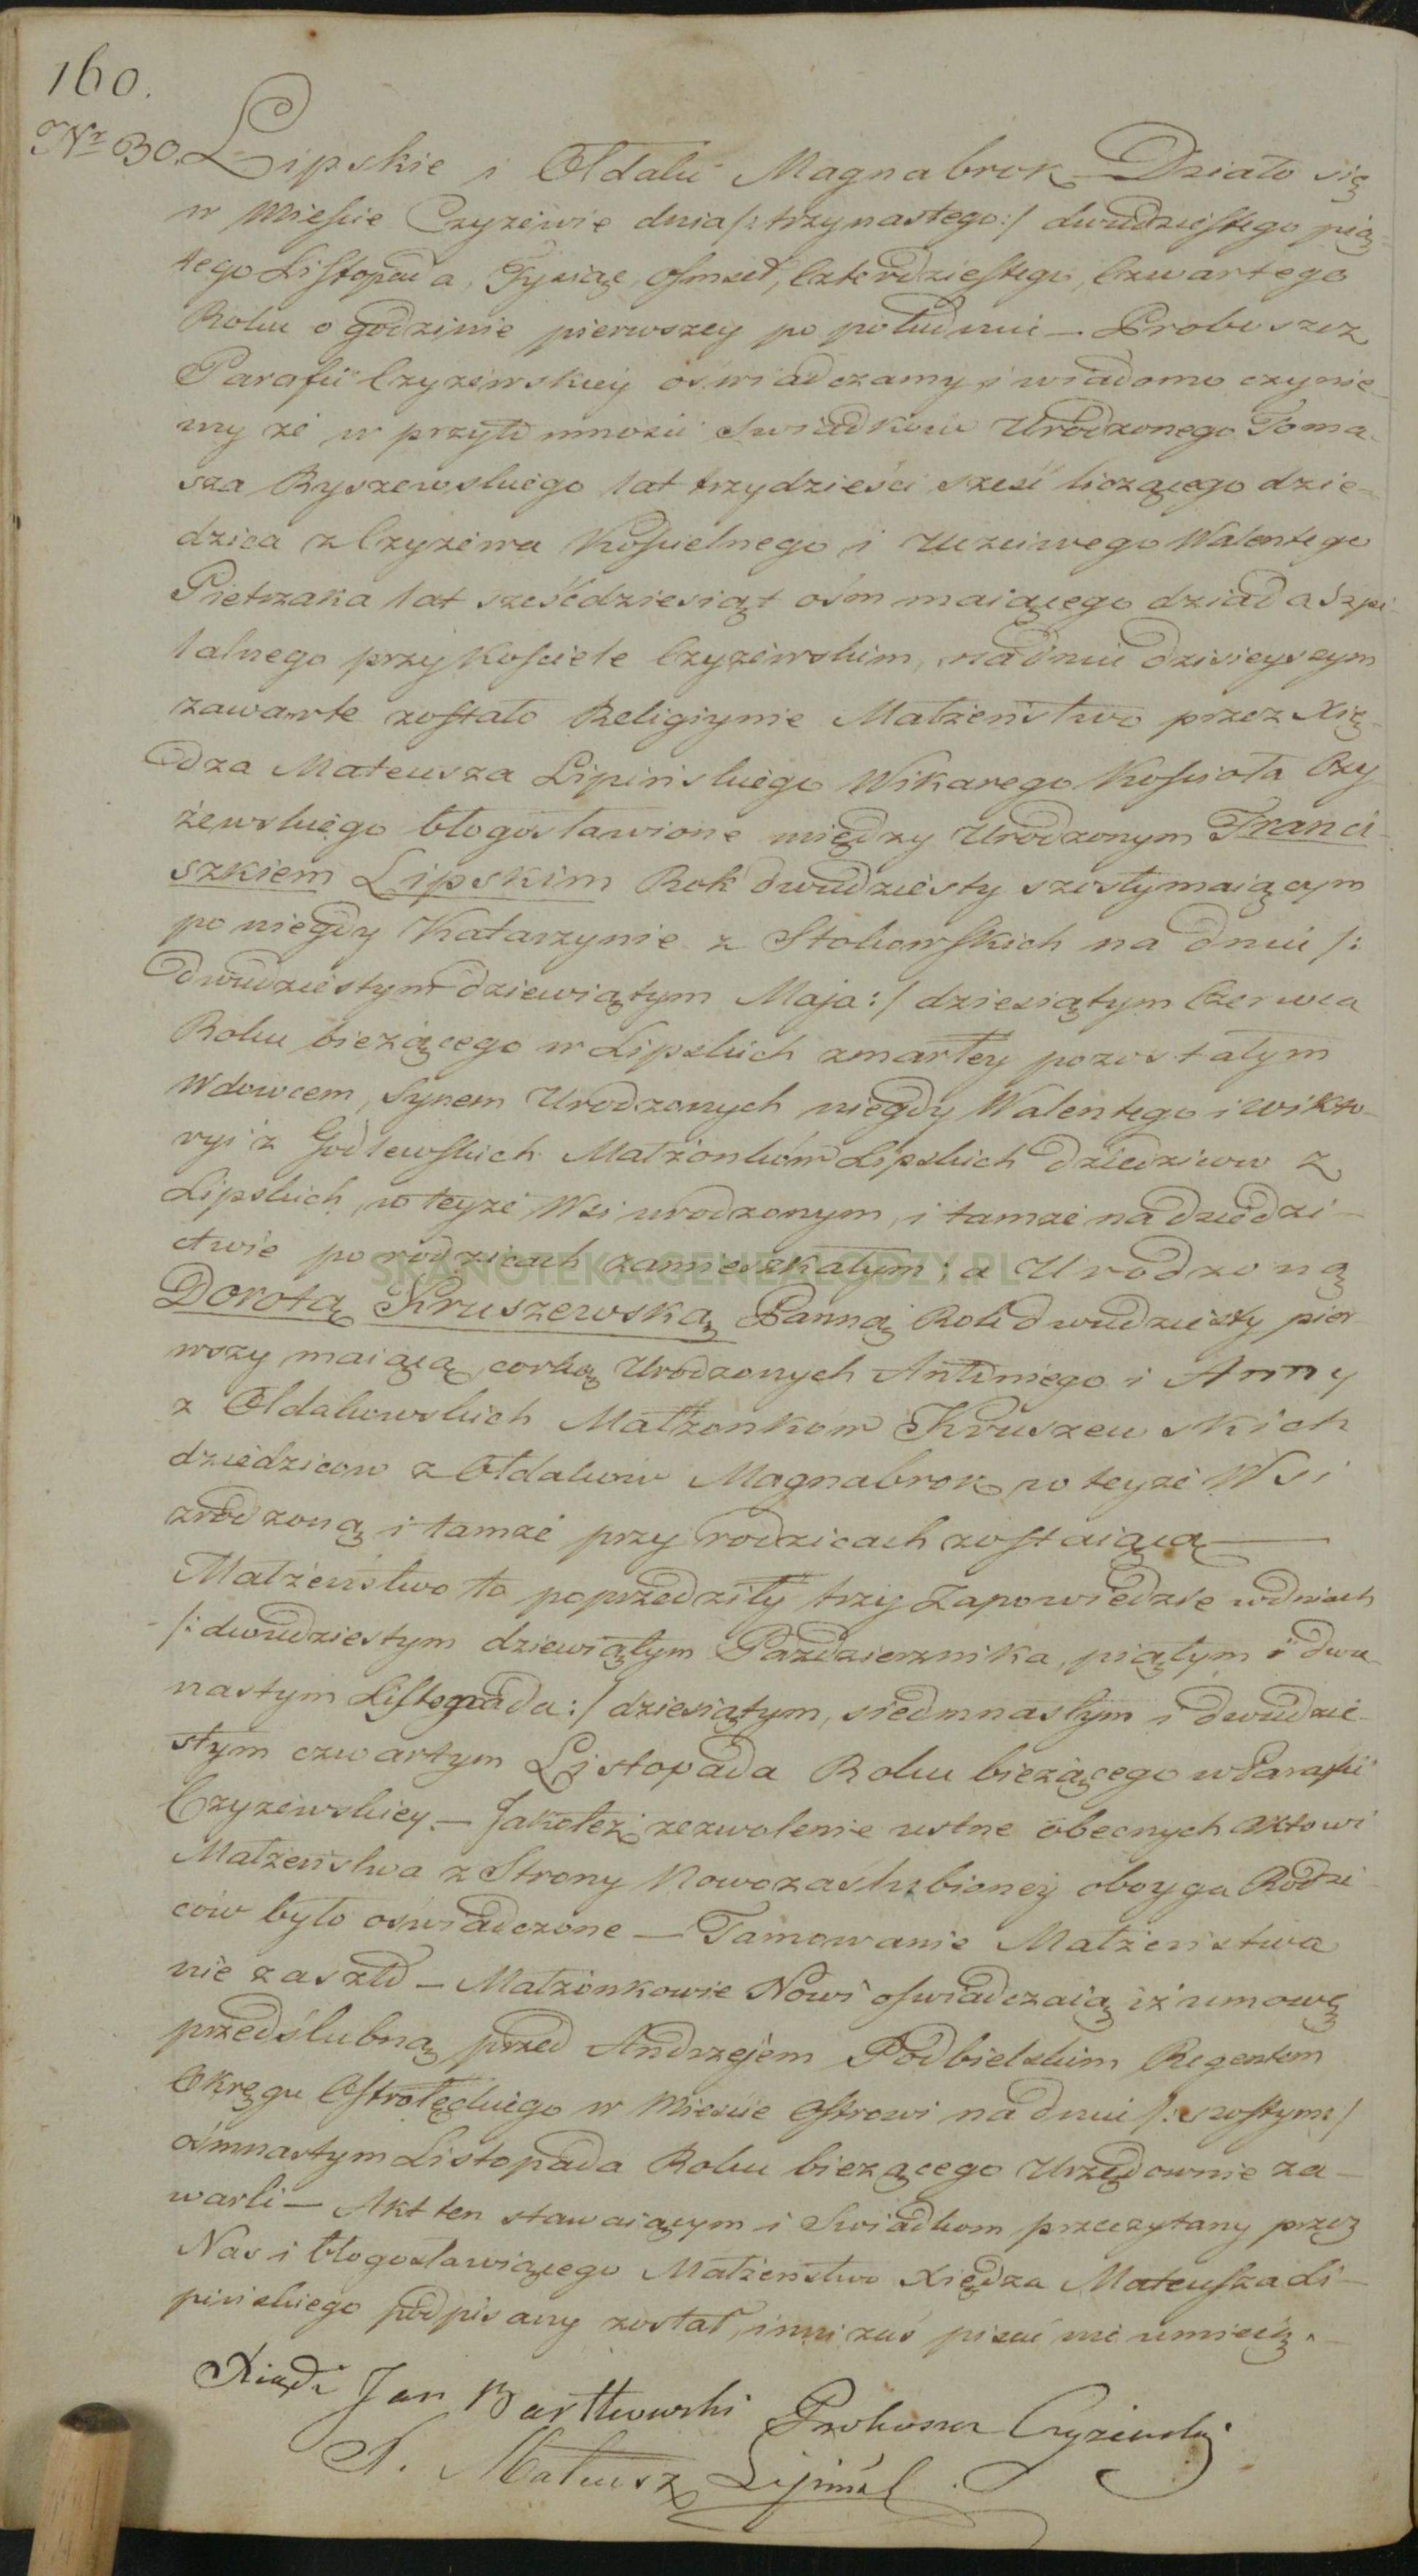 160.
Nr 30. Lipskie i Ołdaki Magnabrok Działo się
w Mieście Czyżewie dnia /: trzynastego :/ dwudziestego pią-
tego Listopada, Tysiąc, Osmset, Czterdziestego, Czwartego
Roku o godzinie pierwszey po południu — Proboszcz
Parafii Czyżewskiey oswiadczamy i wiadomo czynie-
my że w przytomnosci Swiadkow Urodzonego Toma-
sza Ryszewskiego lat trzydzieści sześć liczącego dzie-
dzica z Czyżewa Kościelnego i Uczciwego Walentego
Pietrzaka lat sześćdziesiąt ośm maiącego dziada Szpi-
talnego przy Kościele Czyżewskim, na dniu dzisieyszym
zawarte zostało Religiynie Małżeństwo przez Xię-
dza Mateusza Lipińskiego Wikarego Kościoła Czy-
żewskiego błogosławione między Urodzonym Franci-
szkiem Lipskim Rok dwudziesty szosty maiącym
po niegdy Katarzynie z Stokowskich na dniu /:
dwudziestym dziewiątym Maja :/ dziesiątym Czerwca
Roku bieżącego w Lipskich zmarłey pozostałym
Wdowcem, Synem Urodzonych niegdy Walentego i Wikto-
ryi z Godlewskich Małżonków Lipskich dziedziców z
Lipskich, w teyże Wsi urodzonym, i tamże na dziedzi-
ctwie po rodzicach zamieszkałym; a Urodzoną
SKANOTEKA.GENEALODZY.PL
Dorotą Kruszewską Panną Rok dwudziesty pier-
wszy maiącą, corką Urodzonych Antoniego i Anny
z Ołdakowskich Małżonkow Kruszewskich
dziedzicow z Ołdakow Magnabrok w teyże Wsi
zrodzoną i tamże przy rodzicach zostaiącą —
Małżeństwo to poprzedziły trzy Zapowiedzie w dniach
/: dwudziestym dziewiątym Pazdziernika, piątym i dwu-
nastym Listopada :/ dziesiątym, siedmnastym i dwudzie-
stym czwartym Listopada Roku bieżącego w Parafii
Czyżewskiey. — Jakoteż zezwolenie ustne obecnych aktowi
Małżeństwa z Strony Nowozaslubioney oboyga Rodzi-
ców było oswiadczone — Tamowanie Małżeństwa
nie zaszło — Małżonkowie Nowi oswiadczaią iż umowę
przedślubną przed Andrzejem Podbielskim Regentem
Okręgu Ostrołęckiego w Mieście Ostrowi na dniu /: szostym :/
ośmnastym Listopada Roku bieżącego Urzędownie za-
warli — Akt ten stawaiącym i Swiadkom przeczytany przez
Nas i błogosławiącego Małżeństwo Xiędza Mateusza Li-
pińskiego podpisany został, inni zaś pisać nie umieią. —
Xiądz Jan Bartkowski Proboszcz Czyżewski
X. Mateusz Lipiński